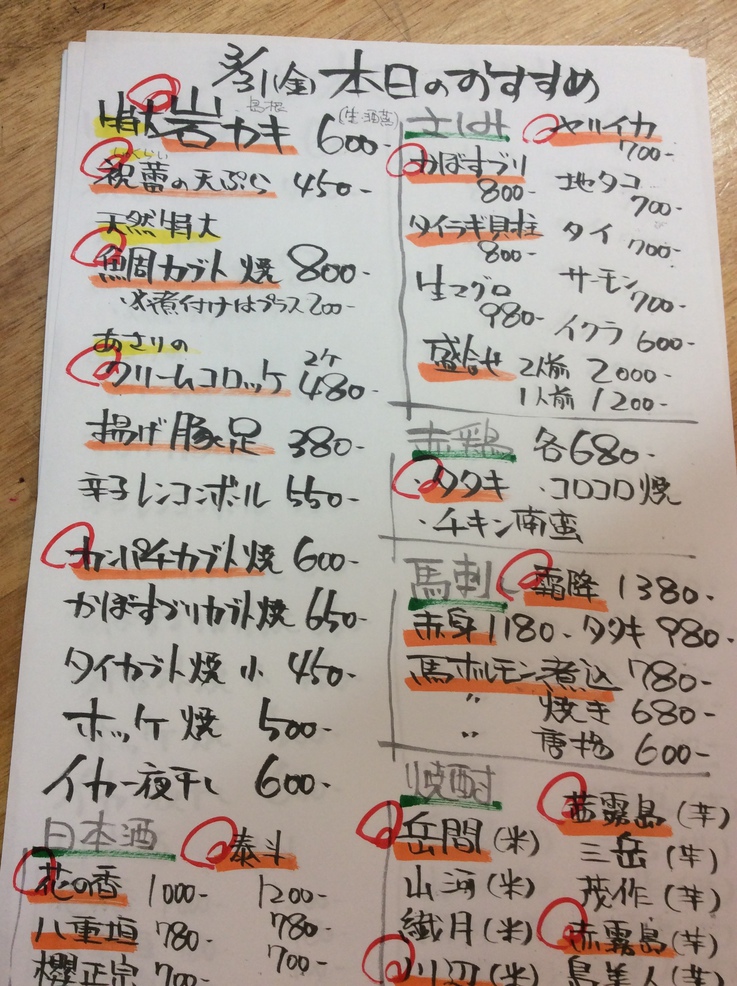 3/31(金) 本日のおすすめ
特大岩カキ 島根 (生・酒蒸) 600-
祝蕾の天ぷら 450-
天然特大
鯛カブト焼 800-
※煮付けはプラス200-
あさりの
クリームコロッケ 2ケ 480-
揚げ豚足 380-
辛子レンコンボール 550-
カンパチカブト焼 600-
かぼすブリカブト焼 650-
タイカブト焼 小 450-
ホッケ焼 500-
イカ一夜干し 600-
日本酒
花の香 1000-
八重垣 780-
櫻正宗 700-
泰斗
1200-
780-
700-
さしみ
ヤリイカ 700-
かぼすブリ 800-
地タコ 700-
タイラギ貝柱 800-
タイ 700-
生マグロ 980-
サーモン 700-
イクラ 600-
盛合せ 2人前 2000-
1人前 1200-
赤鶏 各680-
・タタキ ・コロコロ焼
・チキン南蛮
馬刺し 霜降 1380-
赤身 1180- タタキ 980-
馬ホルモン煮込 780-
〃 焼き 680-
〃 唐揚 600-
焼酎
岳間(米)
山河(米)
繊月(米)
川辺(米)
茜霧島(芋)
三岳(芋)
茂作(芋)
赤霧島(芋)
島美人(芋)